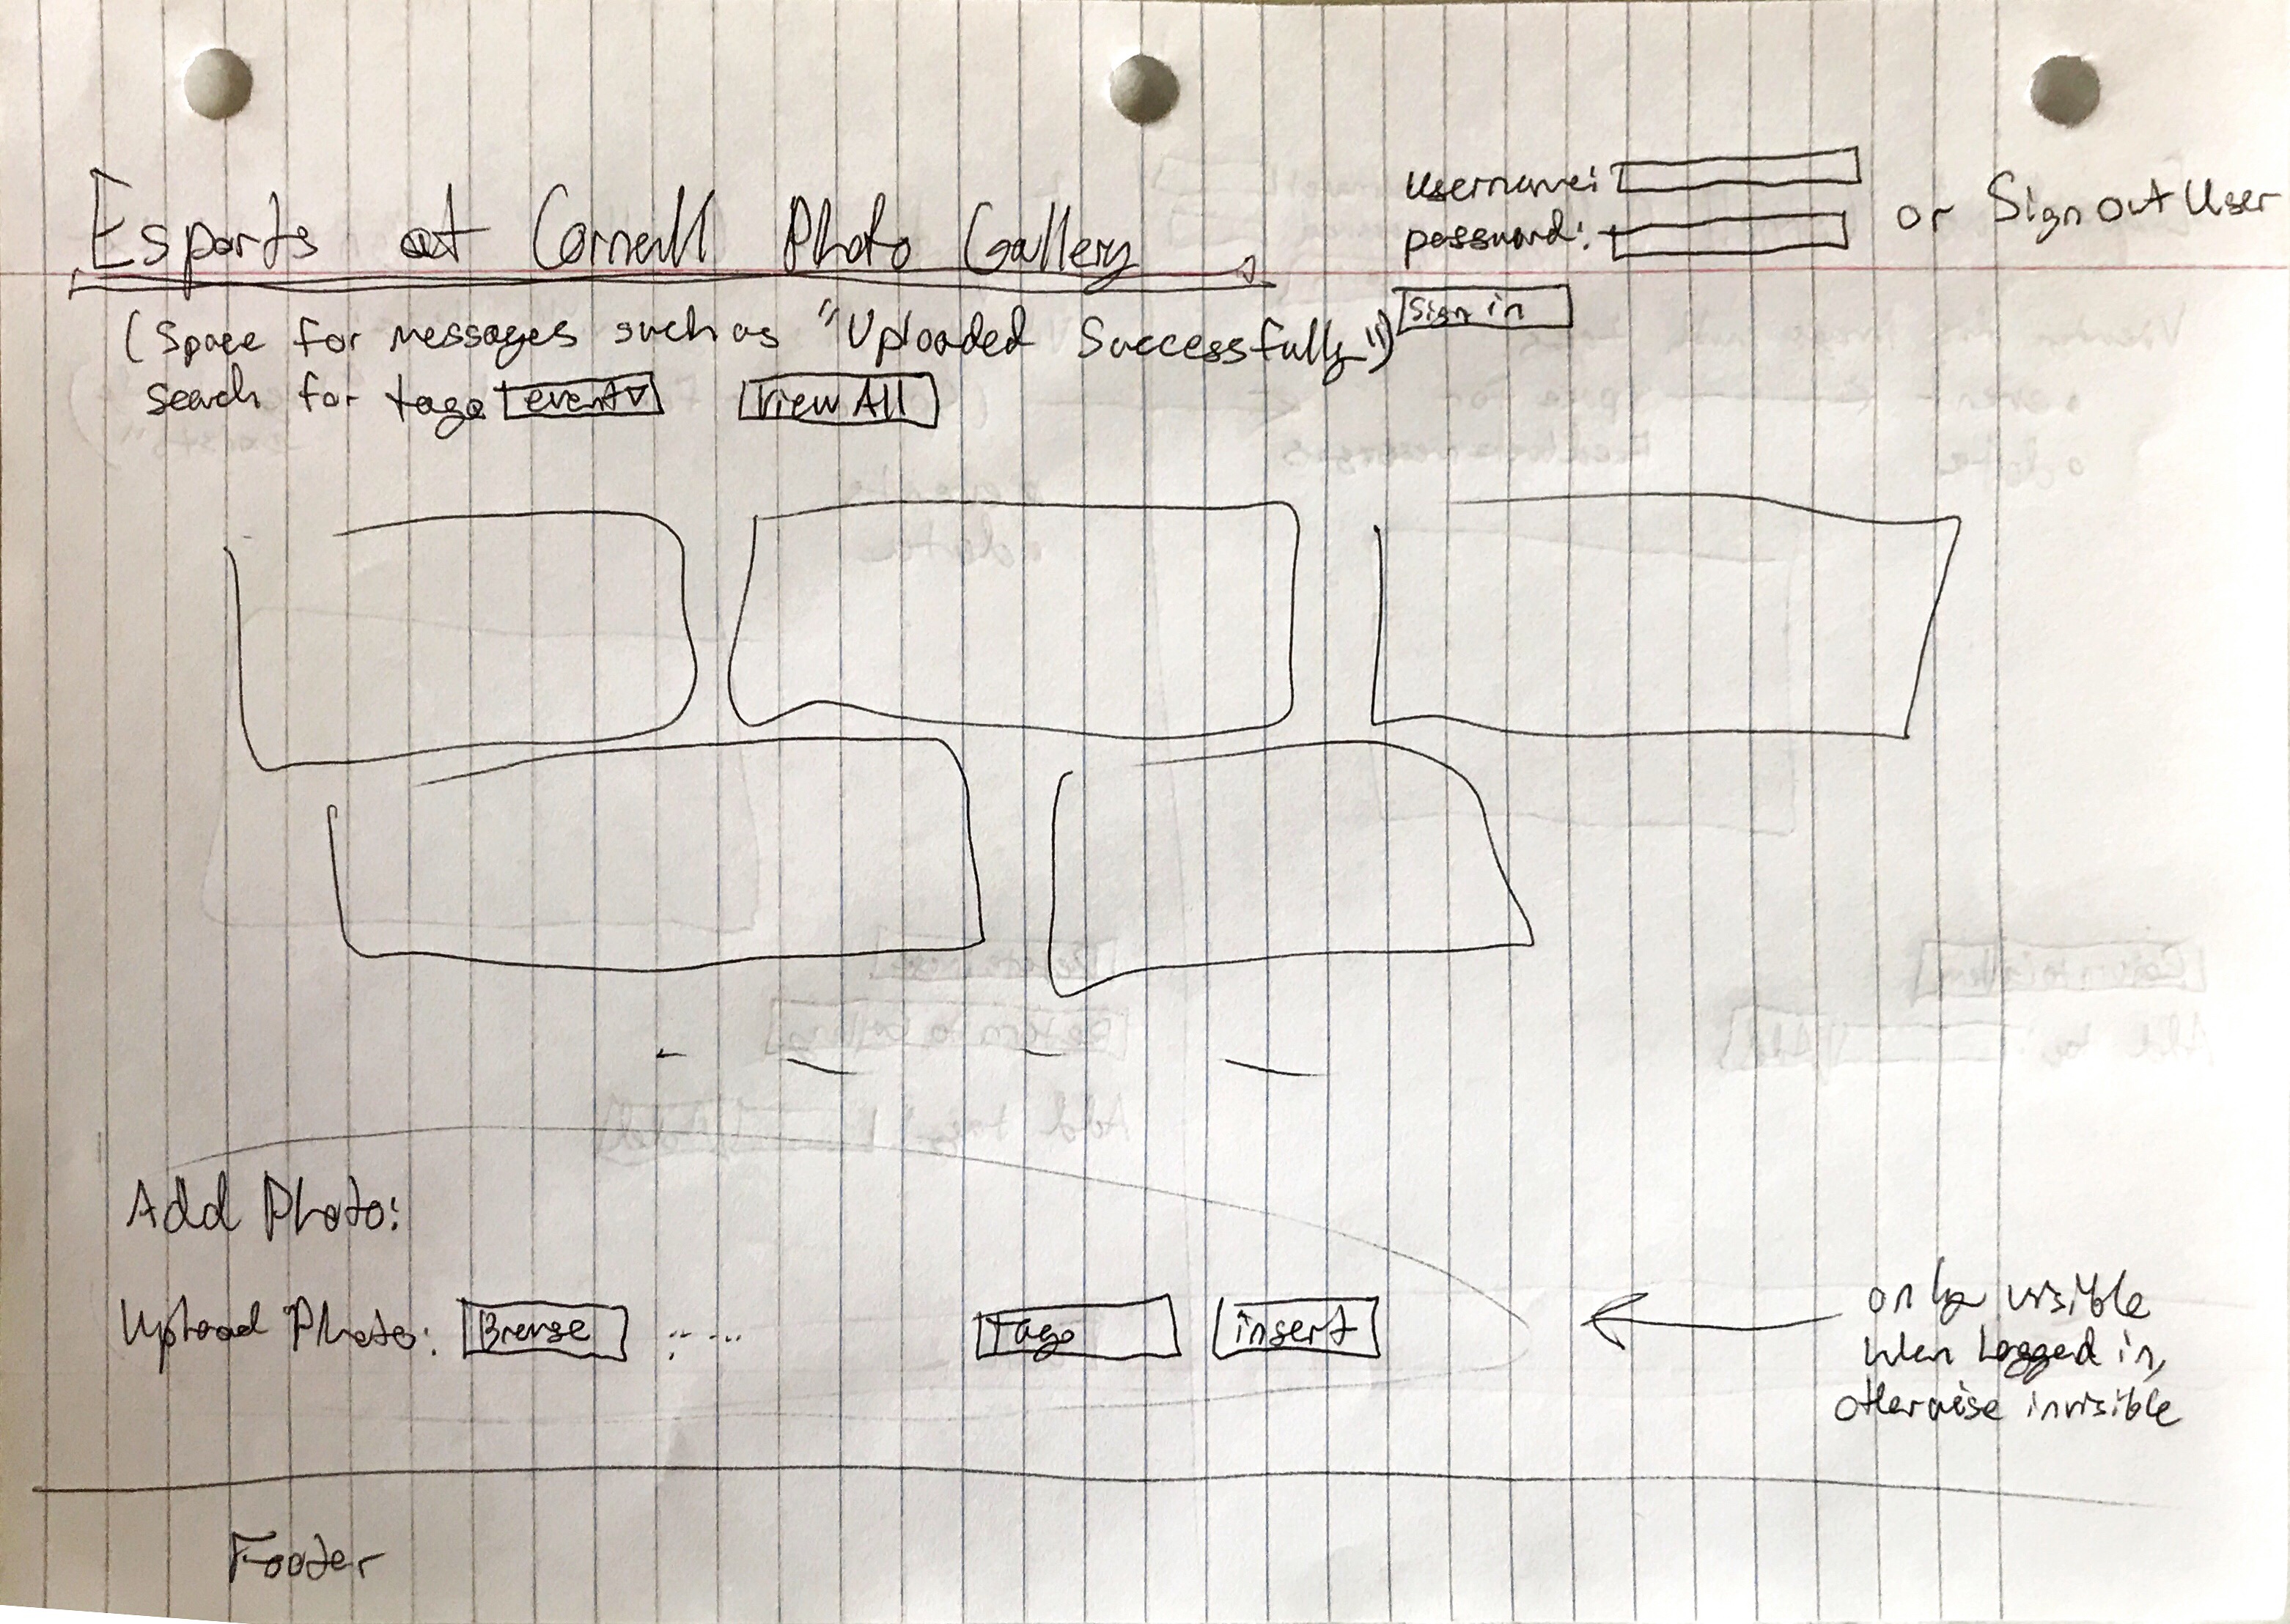 Esports at Cornell Photo Gallery
username:
password:
or Sign out User
Sign in
(Space for messages such as "Uploaded Successfully")
search for tags event View All
Add Photo:
Upload Photo: Browse Tags insert
only visible
when logged in,
otherwise invisible
Footer